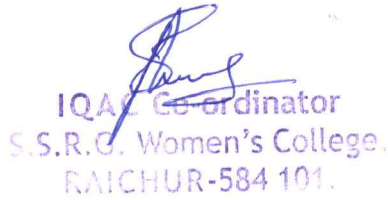 IQAC Co-ordinator
S.S.R.G. Women's College.
RAICHUR-584 101.